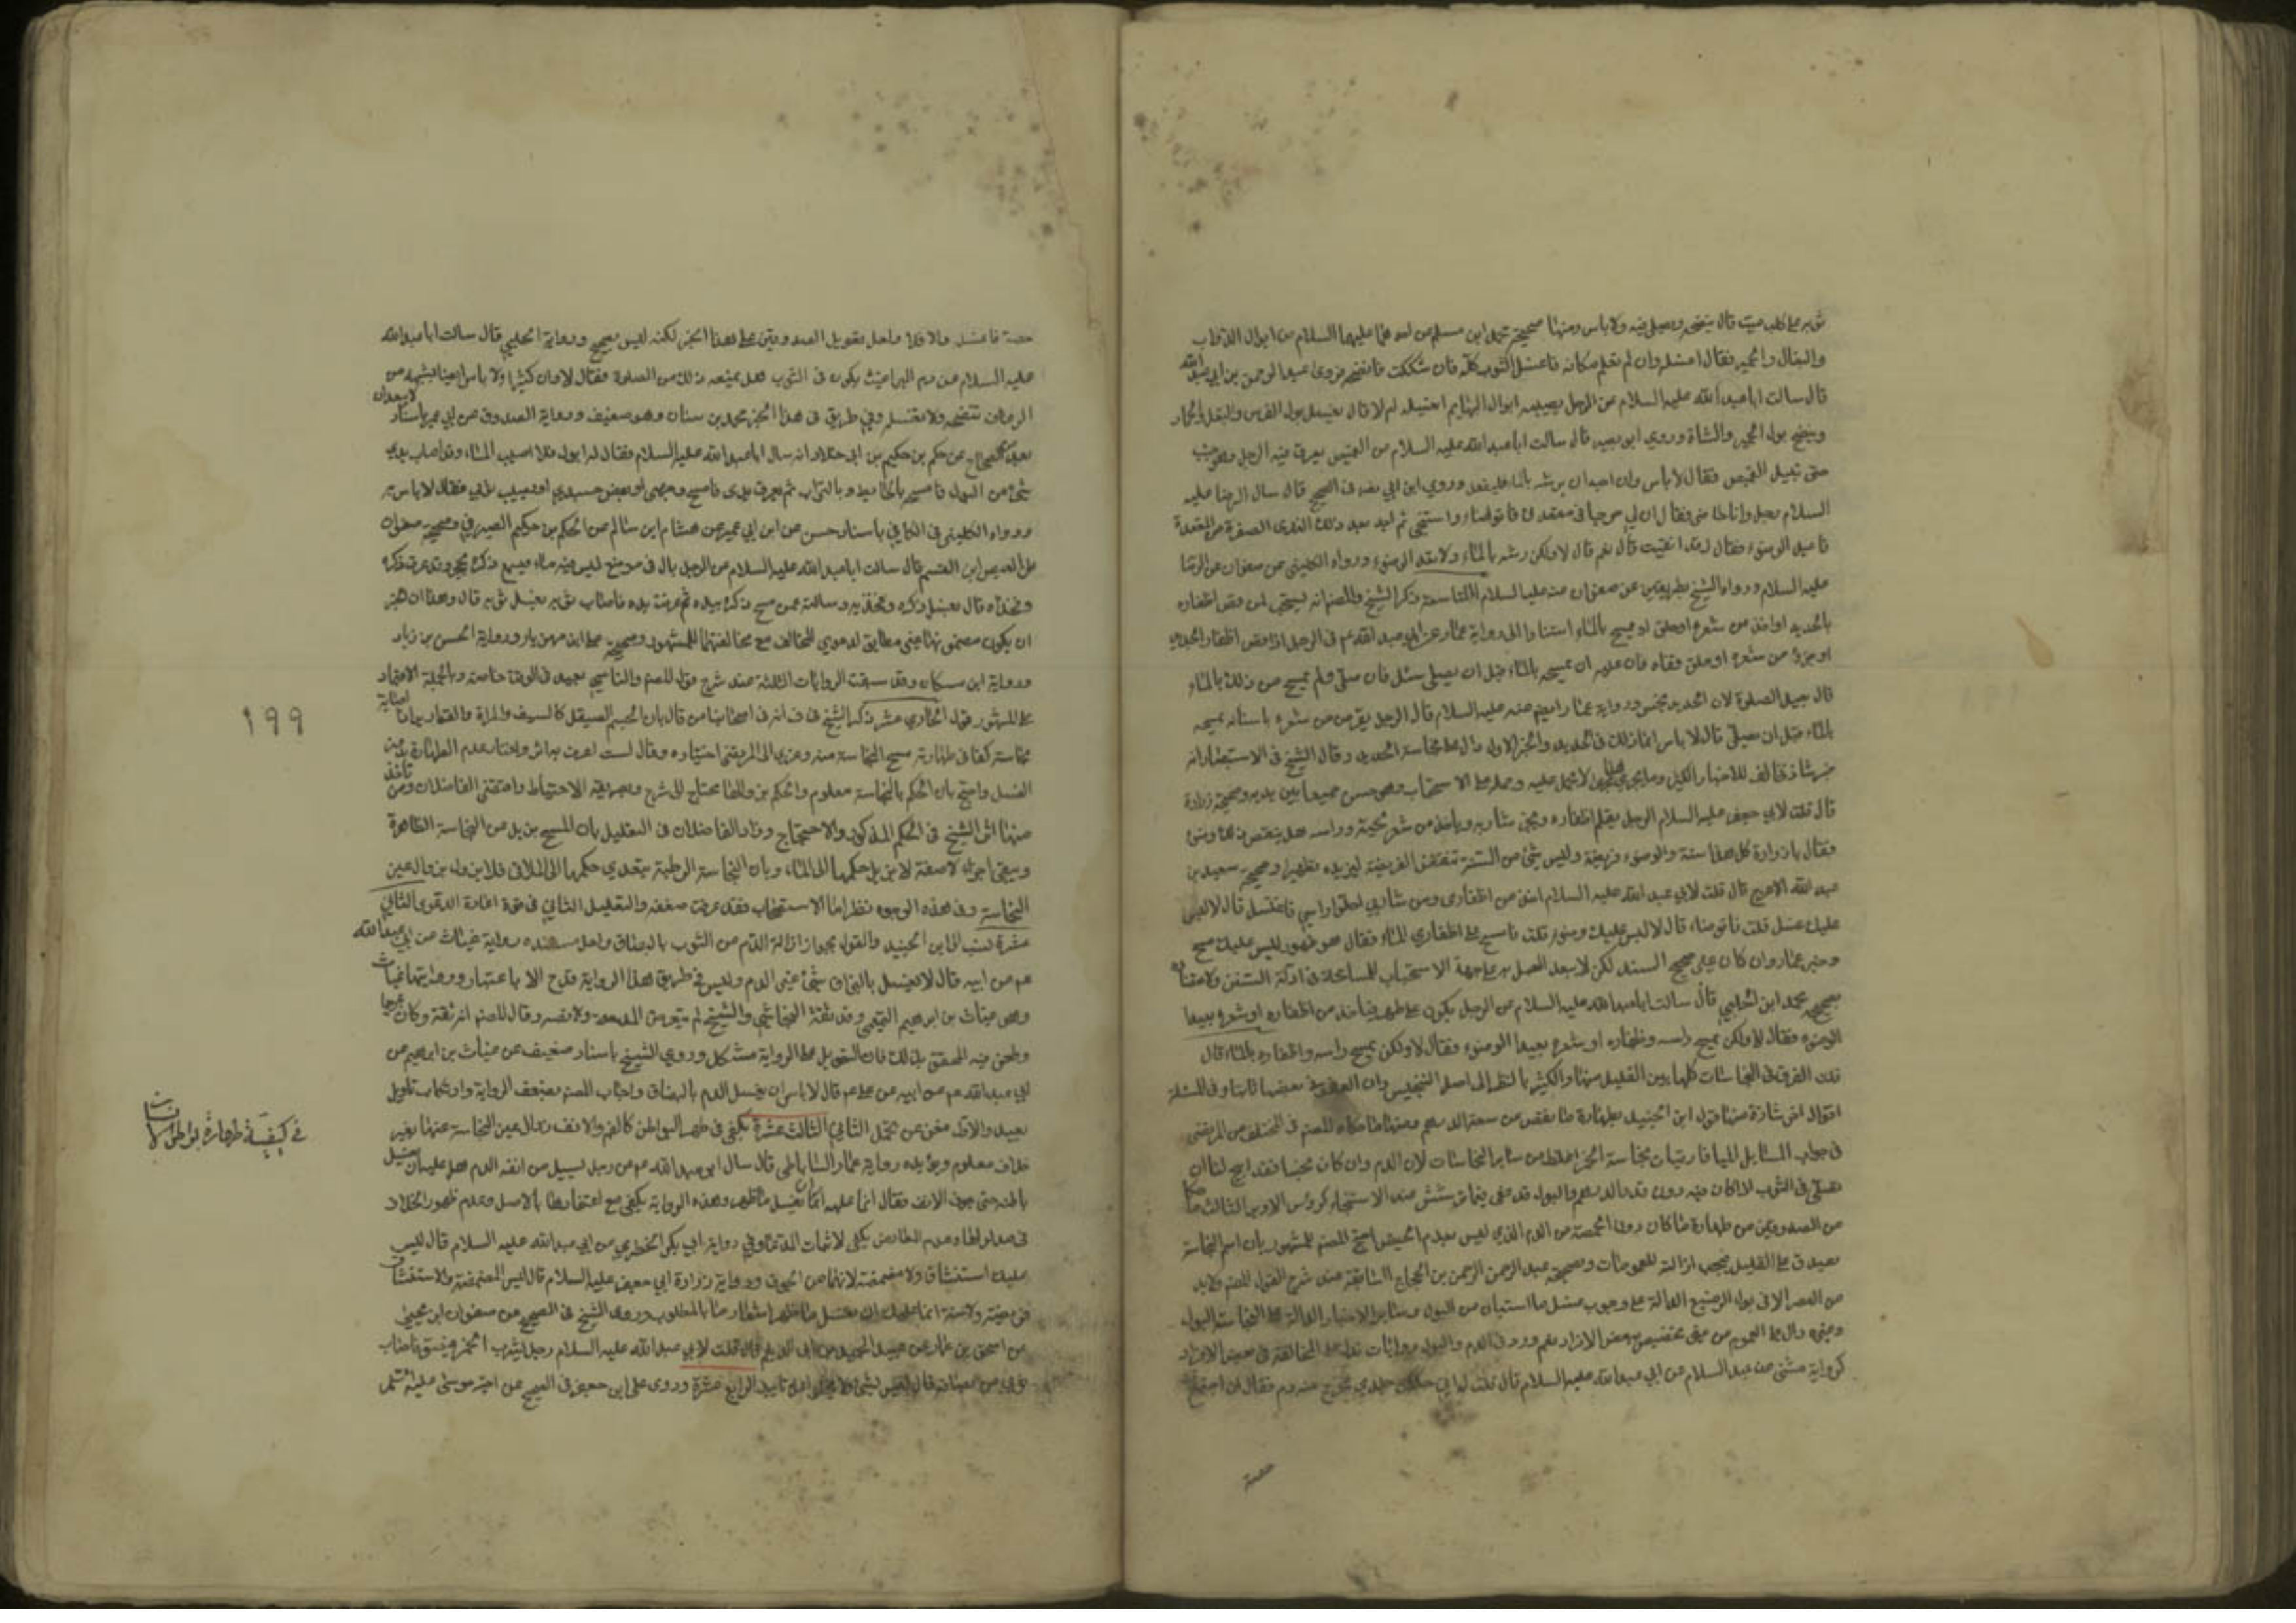 ثوبه على كلب ميت قال ينضحه ويصلي فيه ولا باس ومنها صحيحة محمد ابن مسلم عن احدهما عليهما السلام من ابوال الدواب
والبغال والحمير فقال اغسله وان لم تعلم مكانه فاغسل الثوب كله فان شككت فانضحه وروى عبد الرحمن بن ابي عبد الله
قال سالت ابا عبد الله عليه السلام عن الرجل يصيبه ابوال البهايم ايغسله ام لا قال يغسل بول الفرس والبغل والحمار
وينضح بول البعير والشاة وروى ابو بصير قال سالت ابا عبد الله عليه السلام عن القميص يعرق فيه الرجل وهو جنب
حتى يبتل القميص فقال لا باس وان احب ان يرشه بالماء فليفعل وروى ابن ابي نصر في الصحيح قال سال الرضا عليه
السلام رجل وانا حاضر فقال ان لي جرحا في مقعدتي فاتوضاء واستنجي ثم اجد بعد ذلك الندى الصفرة من المقعدة
فاعيد الوضوء فقال وقد انقيت قال نعم قال لا ولكن رشه بالماء ولا تعد الوضوء ورواه الكليني عن صفوان عن الرضا
عليه السلام ورواه الشيخ بطريقين عن صفوان عنه عليه السلام التاسعة ذكر الشيخ والمصنف انه يستحب لمن قص اظفاره
بالحديد او اخذ من شعره او حلق ان يمسح بالماء استنادا الى رواية عمار عن ابي عبد الله عم في الرجل اذا قص اظفاره بالحديد
او جز من شعره او حلق قفاه فان عليه ان يمسحه بالماء قبل ان يصلي سئل فان صلى ولم يمسح من ذلك بالماء
قال يعيد الصلوة لان الحديد نجس ورواية عمار ايضا عنه عليه السلام قال الرجل يقرض من شعره باسنانه يمسحه
بالماء قبل ان يصلي قال لا باس انما ذلك في الحديد والخبر الاول دال على نجاسة الحديد وقال الشيخ في الاستبصار انه
خبر شاذ مخالف للاخبار الكثيرة وما يجري هذا المجرى لا يعمل عليه وحمله على الاستحباب وهو حسن جمعا بين يديه وصحيحة زرارة
قال قلت لابي جعفر عليه السلام الرجل يقلم اظفاره ويجز شاربه وياخذ من شعر لحيته وراسه هل ينقض ذلك وضوئه
فقال يا زرارة كل هذا سنة والوضوء فريضة وليس شئ من السنة تنقض الفريضة ليزيده تطهيرا وصحيحة سعيد بن
عبد الله الاعرج قال قلت لابي عبد الله عليه السلام اخذ من اظفاري ومن شاربي واحلق راسي فاغتسل قال لا ليس
عليك غسل قلت فاتوضاء قال لا ليس عليك وضوء قلت فامسح على اظفاري الماء فقال هو طهور ليس عليك مسح
وخبر عمار وان كان غير صحيح السند لكن لا بعد العمل به على جهة الاستحباب للمساهلة في ادلة السنن
محمد ابن الحلبي قال سالت ابا عبد الله عليه السلام عن الرجل يكون على طهر فياخذ من اظفاره او شعره ايعيد
الوضوء فقال لا ولكن يمسح راسه واظفاره بالماء قال
اقوال اخر شاذة منها قول ابن الجنيد بطهارة ما نقص من سعة الدرهم ومنها ما حكاه المصنف في المختلف عن المرتضى
في جواب المسايل الميافارقيات نجاسة الخمر اغلظ من ساير النجاسات لان الدم وان كان نجسا فقد ابيح لنا ان
نصلي في الثوب اذا كان فيه دون قدر الدرهم والبول قد عفي عما يترشش عند الاستنجاء كرؤس الابر الثالث ما
من الصدوقين من طهارة ما كان دون الحمصة من الدم الذي ليس بدم الحيض احتج المصنف للمشهور بان اسم النجاسة
يصدق على القليل فيجب ازالته للعمومات وصحيحة عبد الرحمن بن الحجاج السابقة عند شرح القول المصنف ولا بد
من العصر الا في بول الرضيع الدالة على وجوب غسل ما استبان من البول وساير الاخبار الدالة على النجاسة البول
كرواية مثنى بن عبد السلام عن ابي عبد الله عليه السلام قال قلت له اني حككت جلدي فخرج منه دم فقال ان اجتمع
حمصة
حمصة فاغسله والا فلا ولعل تعويل الصدوقين على هذا الخبر لكنه ليس بصحيح ورواية الحلبي قال سالت ابا عبد الله
عليه السلام عن دم البراغيث يكون في الثوب هل يمنعه ذلك من الصلوة فقال لا وان كثر ولا باس ايضا بشبهه من
الرعاف تنضحه ولا تغسله وفي طريق في هذا الخبر محمد بن سنان وهو ضعيف ورواية الصدوق عن ابي عمير باسناد
لا يبعد ان
يعد من الصحاح عن حكم بن حكيم بن اخي خلاد انه سال ابا عبد الله عليه السلام فقال له ابول فلا اصيب الماء وقد اصاب يدي
شئ من البول فامسحه بالحايط وبالتراب ثم تعرق يدي فامسح وجهي او بعض جسدي او يصيب ثوبي فقال لا باس به
ورواه الكليني في الكافي باسناد حسن عن ابن ابي عمير عن هشام ابن سالم عن الحكم بن حكيم الصيرفي وصحيحة صفوان
عن العيص ابن القسم قال سالت ابا عبد الله عليه السلام عن الرجل بال في موضع ليس فيه ماء فمسح ذكره بحجر وقد عرق ذكره
وفخذاه قال يغسل ذكره وفخذيه وسالته عمن مسح ذكره بيده ثم عرقت يده فاصاب ثوبه يغسل ثوبه قال
ورواية ابن مسكان وقد سبقت الروايات الثلثة عند شرح قول المصنف والناسي يعيد في الوقت خاصة وبالجملة الاعتماد
على المشهور قوله الحادي عشر ذكر الشيخ في ف انه في اصحابنا من قال بان الجسم الصيقل كالسيف والمراة والقوارير اذا اصابته
نجاسة كفى في طهارته مسح النجاسة منه وعزى الى المرتضى اختياره وقال لست اعرف به اثرا واختار عدم الطهارة بدون
الغسل واحتج بان الحكم بالنجاسة معلوم والحكم بزوالها يحتاج الى شرع وطريقة الاحتياط واقتفى الفاضلان ومن تاخر
عنهما اثر الشيخ في الحكم المذكور والاحتجاج وزاد الفاضلان في التعليل بان المسح يزيل عين النجاسة الظاهرة
ويبقى اجزاء لاصقة لا يزيل حكمها الا الماء وبان النجاسة الرطبة يتعدى حكمها الى الملاقي فلا يزول بزوال عين
النجاسة وفي هذه الوجوه نظر اما الاستصحاب فقد عرفت ضعفه والتعليل الثاني في قوة اعادة الدعوى الثاني
عشرة نسب الى ابن الجنيد القول بجواز ازالة الدم من الثوب بالبصاق ولعل مستنده رواية غياث عن ابي عبد الله
عم عن ابيه قال لا يغسل بالبزاق شئ غير الدم وليس في طريق هذا الرواية قدح الا باعتبار راويتها غياث
وهو غياث بن ابراهيم التميمي وقد وثقه النجاشي والشيخ لم يتعرض لمدحه ولا وقال المصنف انه ثقة وكان بتريا
وطعن فيه المحقق بذلك فان التعويل على الرواية مشكل وروى الشيخ باسناد ضعيف عن غياث بن ابراهيم عن
ابي عبد الله عم عن ابيه عن علي عم قال لا باس ان يغسل الدم بالبصاق واجاب المصنف بضعف الرواية وارتكاب تاويل
بعيد والاول مغن عن تحمل الثاني الثالث عشرة يكفي في طهر البواطن كالفم والانف زوال عين النجاسة عنها بغير
خلاف معلوم ويؤيده رواية عمار الساباطي قال سال ابو عبد الله عم عن رجل يسيل من انفه الدم هل عليه ان يغسل
باطنه حتى جوف الانف فقال انما عليه ان يغسل ما ظهر وهذه الرواية يكفي مع اعتضادها بالاصل وعدم ظهور الخلاف
في مدلولها وعدم المعارض يكفي لاثبات المدعا وفي رواية ابي بكر الحضرمي عن ابي عبد الله عليه السلام قال ليس
عليك استنشاق ولا مضمضة لانهما من الجوف ورواية زرارة ابي جعفر عليه السلام قال ليس المضمضة والاستنشاق
فريضة ولا سنة انما عليك ان تغسل ما ظهر اشعار ما بالمطلوب وروى الشيخ في الصحيح عن صفوان ابن يحيى
عن اسحق بن عمار عن عبد الحميد بن ابي الديلم قال قلت لابي عبد الله عليه السلام رجل يشرب الخمر فيبزق فاصاب
ثوبي من بصاقه قال ليس بشئ الرابع عشرة وروى علي ابن جعفر في الصحيح عن اخيه موسى عليه السلام
١٩٩
في كيفية طهارة بواطن الانسان